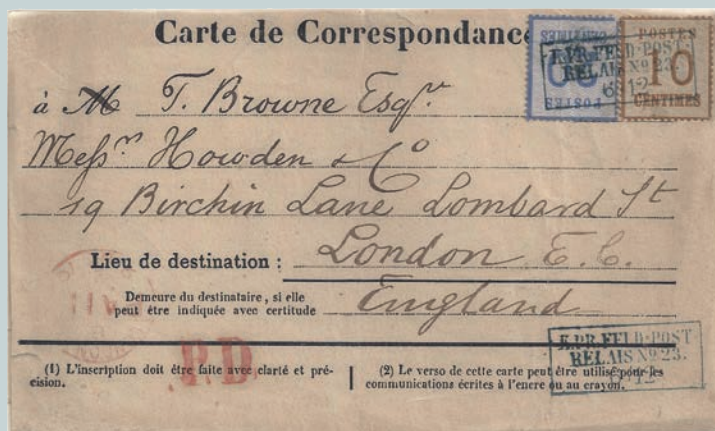 Carte de Correspondance
POSTES
20
CENTIMES
POSTES
10
CENTIMES
K.PR.FELD-POST-
RELAIS No 23.
6 12
à M T. Browne Esqre
Messrs Howden & Co
19 Birchin Lane Lombard St
Lieu de destination : London E.C.
Demeure du destinataire, si elle
peut être indiquée avec certitude England
K.PR.FELD-POST
RELAIS No 23.
12
P.D.
(1) L'inscription doit être faite avec clarté et pré-
cision.
(2) Le verso de cette carte peut être utilisé pour les
communications écrites à l'encre ou au crayon.